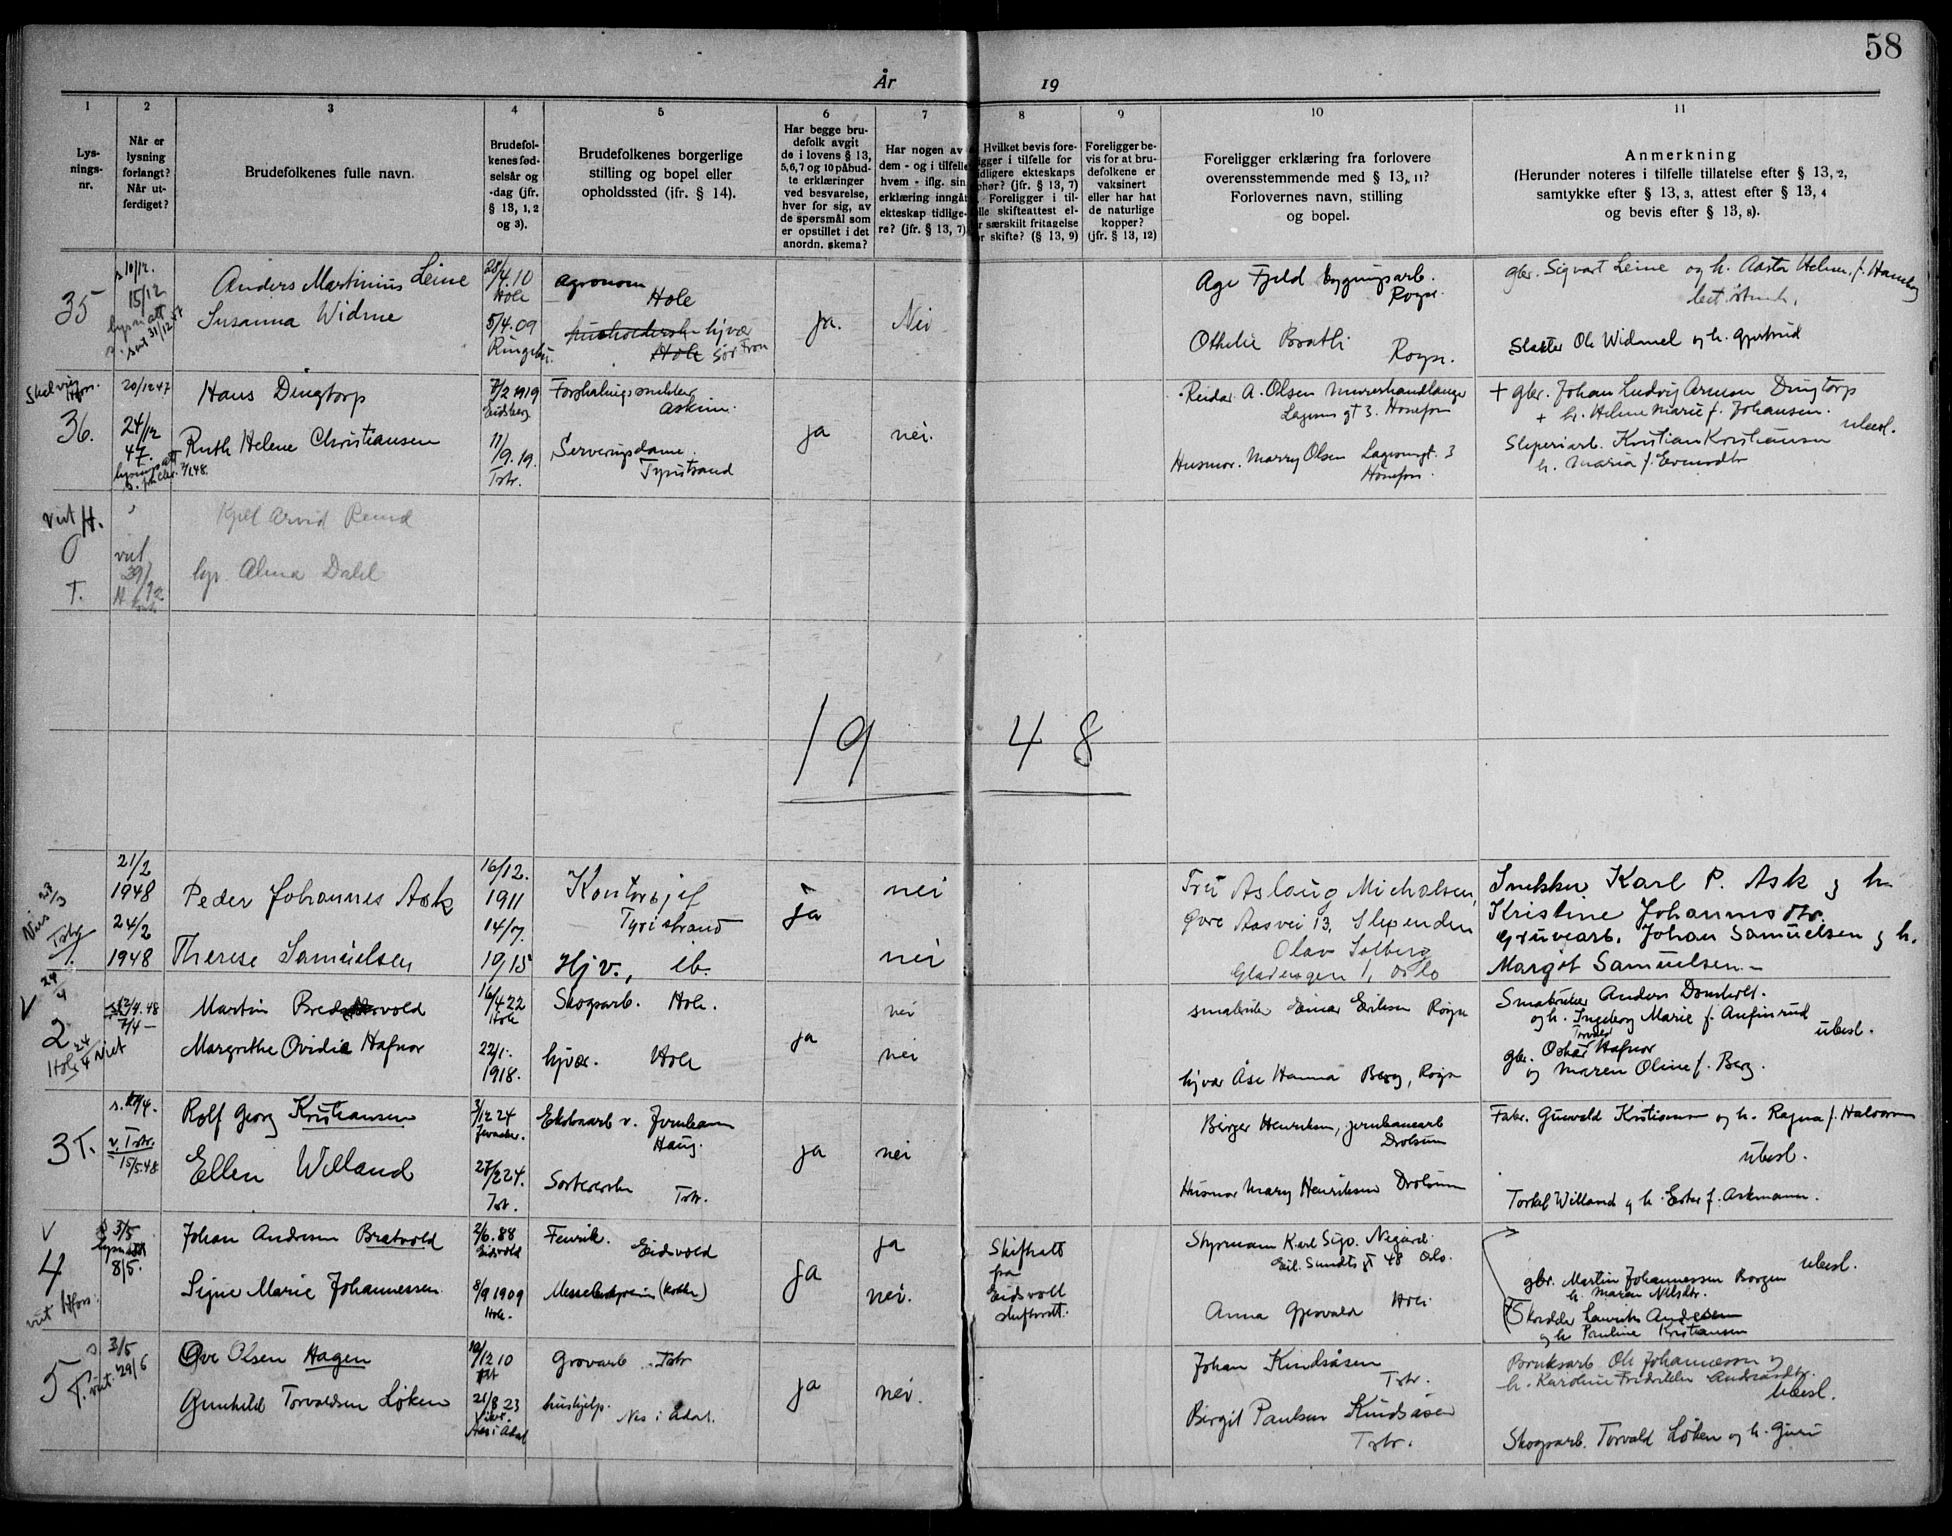 58
År 19
1
Lys-
nings-
nr.
2
Når er
lysning
forlangt?
Når ut-
ferdiget?
3
Brudefolkenes fulle navn.
4
Brudefol-
kenes fød-
selsår og
-dag (jfr.
§ 13, 1, 2
og 3).
5
Brudefolkenes borgerlige
stilling og bopel eller
opholdssted (jfr. § 14).
6
Har begge bru-
defolk avgit
de i lovens § 13,
5,6,7 og 10 påbud-
te erklæringer
ved besvarelse,
hver for sig, av
de spørsmål som
er opstillet i det
anordn. skema?
7
Har nogen av
dem - og i tilfelle
hvem - iflg. sin
erklæring inngår
ekteskap tidlige-
re? (jfr. § 13, 7)
8
Hvilket bevis fore-
igger i tilfelle for
idligere ekteskaps
phør? (jfr. § 13, 7)
Foreligger i til-
elle skifteattest el-
r særskilt fritagelse
or skifte? (§ 13, 9)
9
Foreligger be-
vis for at bru-
defolkene er
vaksinert
eller har hat
de naturlige
kopper?
(jfr. § 13, 12)
10
Foreligger erklæring fra forlovere
overensstemmende med § 13, 11?
Forlovernes navn, stilling
og bopel.
11
Anmerkning
(Herunder noteres i tilfelle tillatelse efter § 13, 2,
samtykke efter § 13, 3, attest efter § 13, 4
og bevis efter § 13, 8).
35
s 10/12.
15/12
lysn att
31/12 47
Anders Martinius Leine
Susanna Widme
28/4.10
Hole
5/4.09
Ringebu.
agronom
Hole
hjvær
Hole Sør Fron
ja.
Nei
Åge Fjeld bygningsarb.
Røyse.
Othelie Bråthe
Røyse.
gbr. Sigvart Leine og h. Aasta Helene f.
Ole Widmel og h. Gjertrud
36.
20/12 47
24/12
47.
Hans Dingtorp
Ruth Helene Christiansen
7/2 1919
Eidsberg
11/9.19.
Tstr.
Askim.
Serveringsdame.
Tyristrand
ja
nei.
Reidar A. Olsen murerhandlanger
Lagesens gt 3. Hønefoss
Husmor. Marry Olsen Lagesensgt. 3
Hønefoss
+ gbr. Johan Ludvig Dingtorp
+ h. Helene Marie f. Johansen.
ubesl.
Sliperiarb. Kristian Kristiansen
h. Maria f.
viet H.
T.
viet
Arvid
Alma Dahl
19 48
21/2
1948
24/2
1948
Peder Johannes Ask
Therese Samuelsen
16/12.
1911
14/7.
1915
Kontorsjef
Tyristrand
Hjv., ib.
ja
nei
nei
Fru Aslaug Michalsen,
Øvre Åsvei 13, Slependen
Olav Solberg
Gladengen 1, Oslo
Snekker Karl P. Ask og h.
Kristine Johannesdtr.
Gruvearb. Johan Samuelsen og h.
Margit Samuelsen.
V
2
Hole
Viet
7/4
Martin
Margrethe Ovidie Hafnor
16/4 22
Hole
22/1.
1918.
Skogsarb. Hole.
hjvær. Hole
ja
nei
nei
småbruker Einar Eriksen Røyse
hjvær Åse Hanna Berg, Røyse
Småbruker Anders Domholt.
og h. Ingeborg Marie f. Anfinrud
ubesl.
gbr. Oskar Hafnor
og Maren Oline f. Berg.
3 T.
v. Tstr.
15/5.48
Rolf Georg Kristiansen
Ellen Willand
3/12 24
27/2 24.
Tstr.
Ekstraarb. v. Jernbanen
Haug.
Sortererske Tstr.
ja
nei
Birger Henriksen, jernbanearb
Drolsum
Husmor Mary Henriksen Drolsum
Fabr. Gunvald Kristiansen og h. Ragna f. Halvorsen
ubesl.
Torkel Willand og h. Ester f. Askmann.
V
4
3/5
8/5.
Johan Andresen Bratvold
Signe Marie Johannessen
2/6.88
Eidsvold
8/9 1909
Hole.
Fenrik. Eidsvold
ja
ja
nei.
Skifteatt
fra
Eidsvoll
skifterett.
Styrmann Karl Sigv. Nigård
Eil. Sundts gt 48 Oslo.
Anna Gjesvold Hole
ubesl.
gbr. Martin Johannessen Borgen
h. Maren Nilsdtr.
Skredder Laurits Andresen
og h. Pauline Kristiansen
5
T.
s. 3/5
viet. 29/6
Ove Olsen Hagen
Gunhild Torvaldsen Løken
10/12 10
21/8 23
Nes i Ådal
Grovarb. Tstr
hushjelp.
Nes i Ådal.
ja
nei.
Johan Kindsåsen
Tstr.
Birgit Paulsen Kindsåsen
Tstr.
Bruksarb. Ole Johannessen og
h. Karoline Fredrikke
Ubesl.
Skogsarb. Torvald Løken og h. Guri